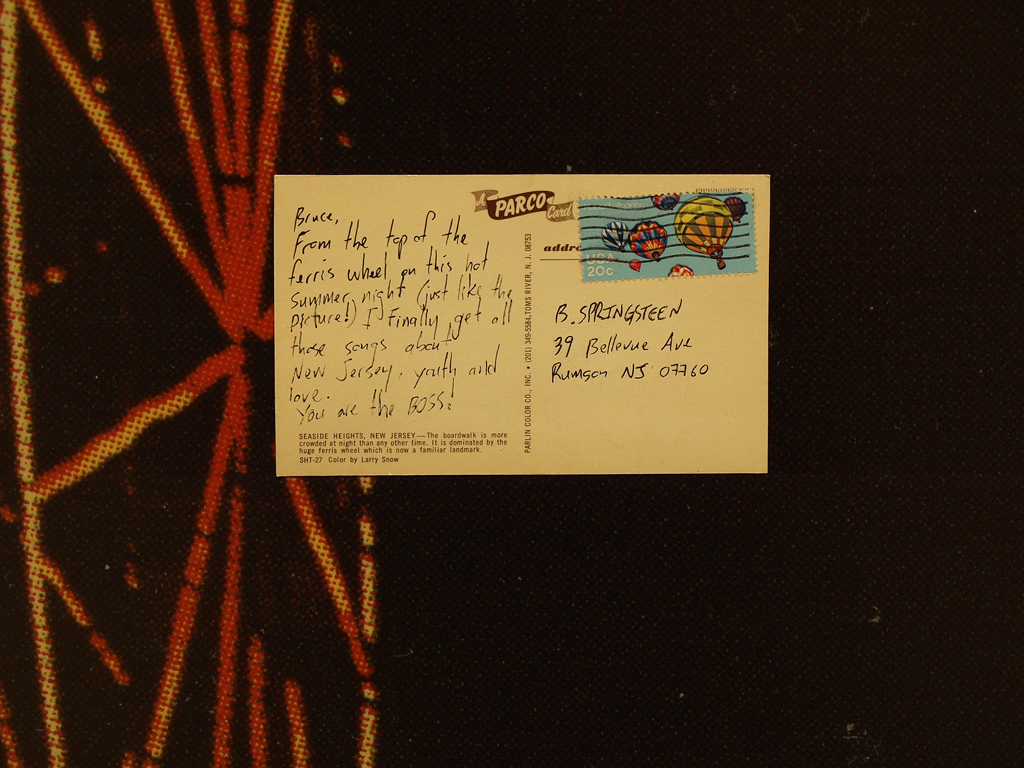 Bruce,
From the top of the
ferris wheel on this hot
summer night (just like the
picture!) I finally get all
those songs about
New Jersey, youth and
love.
You are the BOSS!
SEASIDE HEIGHTS, NEW JERSEY—The boardwalk is more
crowded at night than any other time. It is dominated by the
huge ferris wheel which is now a familiar landmark.
SHT-27 Color by Larry Snow
PARLIN COLOR CO., INC. • (201) 349-5584, TOMS RIVER, N. J. 08753
A PARCO Card
addre
USA
20c
B. SPRINGSTEEN
39 Bellevue Ave
Rumson NJ 07760